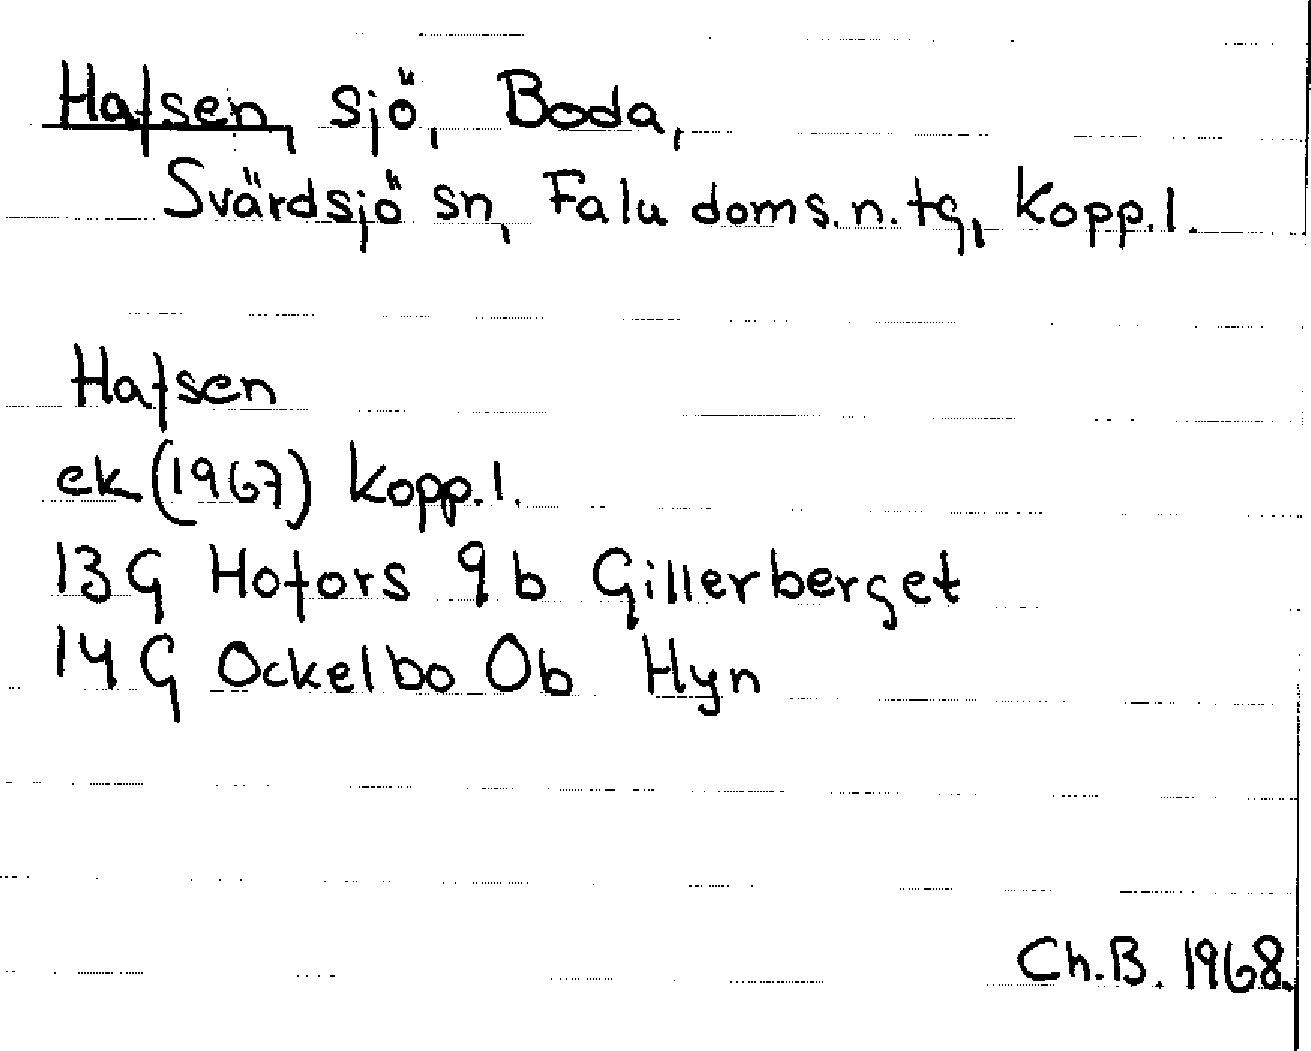 Hafsen, sjö, Boda,
Svärdsjö sn, Falu doms.n.tg, Kopp.l.
Hafsen
ek (1967) Kopp.l.
13G Hofors 9b Gillerberget
14G Ockelbo 0b Hyn
Ch.B. 1968.